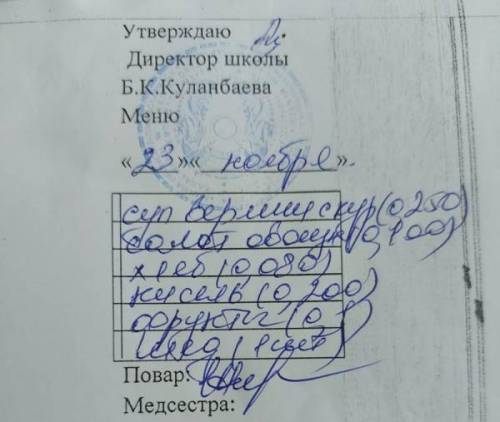 Утверждаю
Директор школы
Б.К.Куланбаева
Меню
«23»«ноября».
суп вермиш с кур (0,250)
салат овощн (0,100)
хлеб (0,080)
кисель (0,200)
фрукты (0,1)
(1 шт)
Повар:
Медсестра: